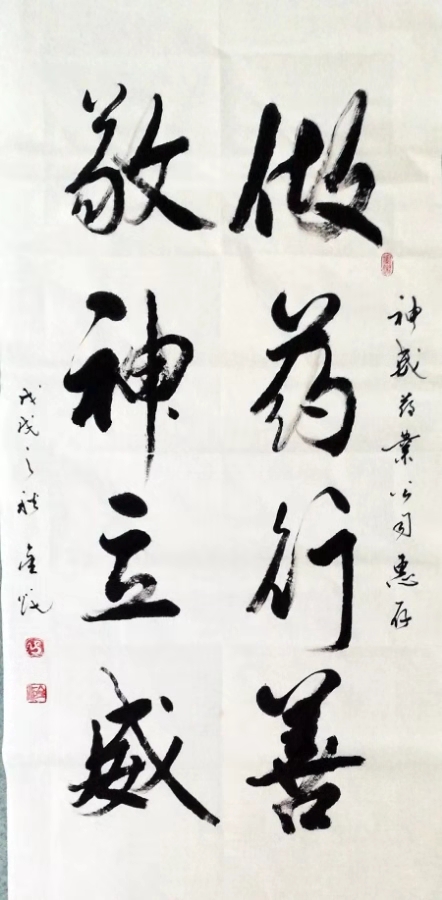 神威药业公司惠存
做药行善
敬神立威
戊戌之秋